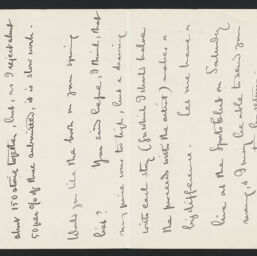 about 150 stories together, but, as I reject about
50 per % of those submitted, it is slow work.
Would you like the book on your spring
list? You said before, I think, that
my price was too high, but a drawing
with each story (for which I should halve
the proceeds with the artist) makes a
big difference. Let me have a
line at the Sports Club on Saturday
morning, & I may be able to send you